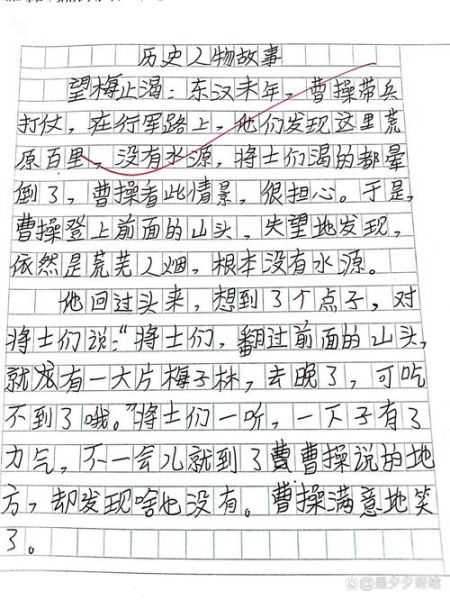 历史人物故事
望梅止渴：东汉末年，曹操带兵
打仗，在行军路上，他们发现这里荒
原百里，没有水源，将士们渴的都晕
倒了，曹操看此情景，很担心。于是，
曹操登上前面的山头，失望地发现，
依然是荒芜人烟，根本没有水源。
他回过头来，想到了个点子，对
将士们说：“将士们，翻过前面的山头，
就有一大片梅子林，去晚了，可吃
不到了哦。”将士们一听，一下子有了
力气，不一会儿就到了曹操说的地
方，却发现啥也没有。曹操满意地笑
了。